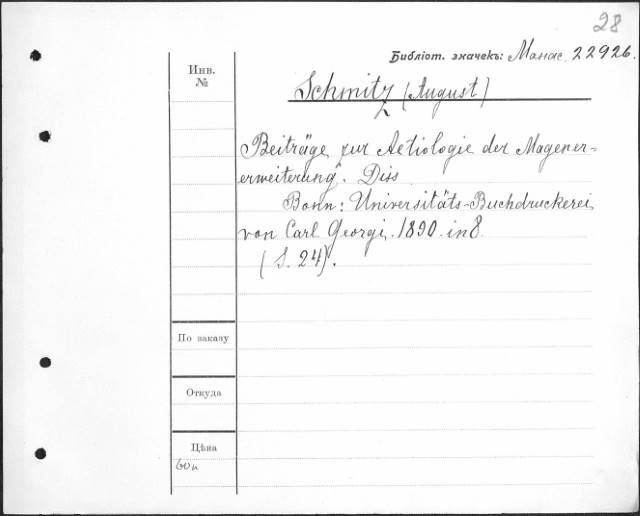 28
Библіот. значекъ: Манас. 22926.
Инв.
№
Schmitz (August)
Beiträge zur Aetiologie der Magener-
erweiterung. Diss
Bonn: Universitäts-Buchdruckerei
von Carl Georgi. 1890. in 8.
(S. 24).
По заказу
Откуда
Цѣна
60к